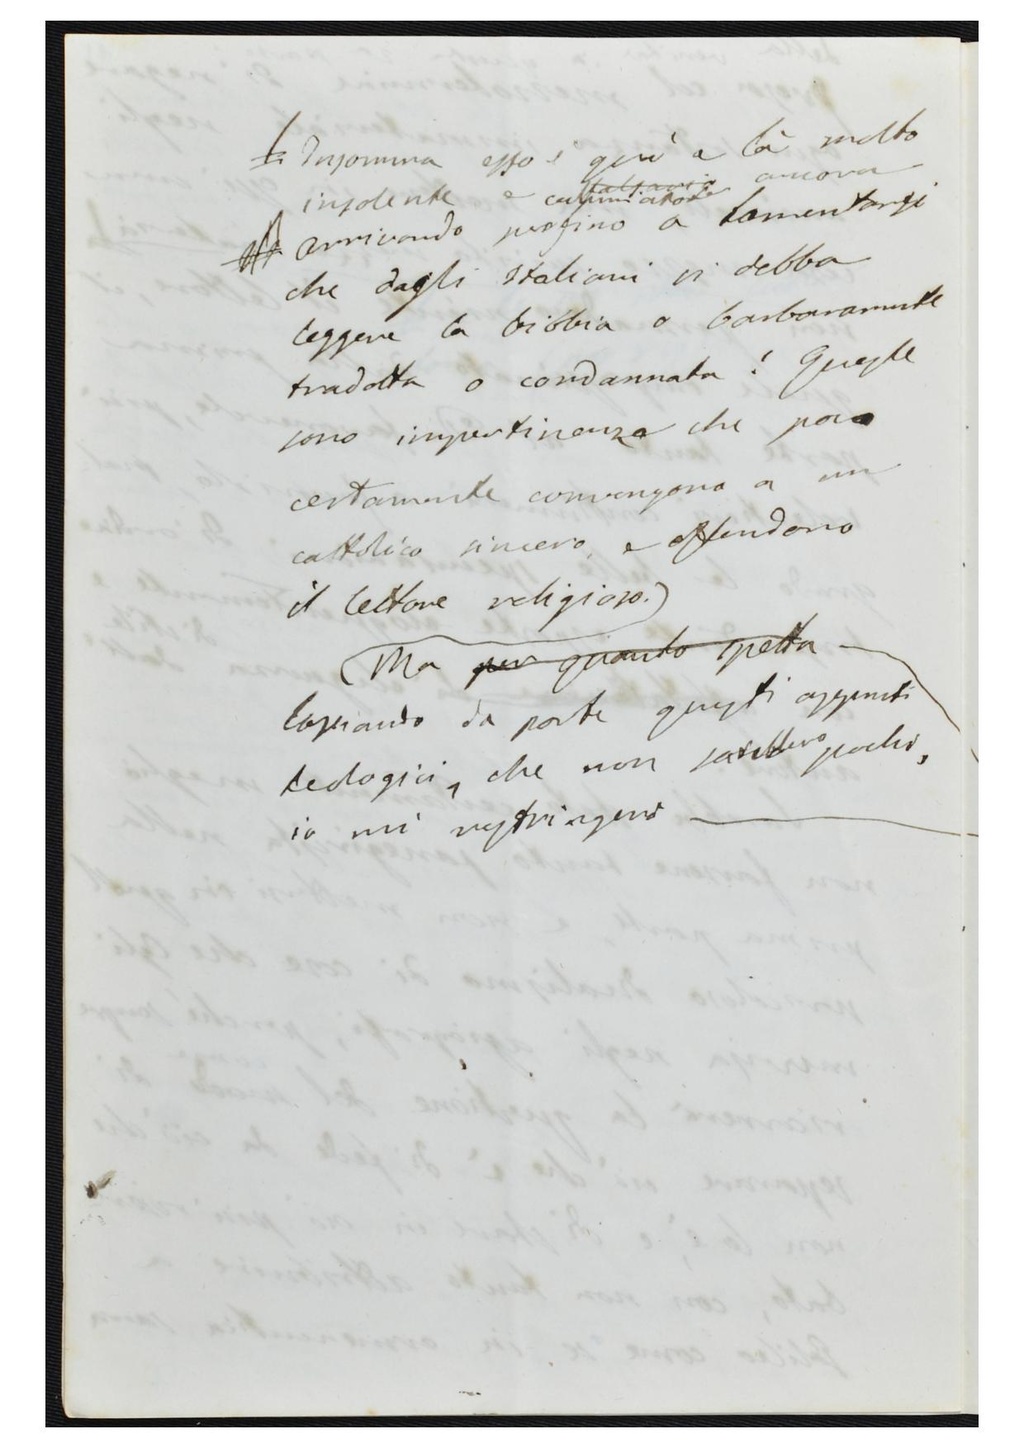 Insomma esso è quà e là molto
insolente e calunniatore ancora
arrivando perfino a lamentarsi
che dagli Italiani si debba
leggere la bibbia o barbaramente
tradotta o condannata! Queste
sono impertinenze che poco
certamente convengono a un
cattolico sincero, e offendono
il lettore religioso.)
(Ma per quanto spetta
lasciando da parte questi appunti
teologici, che non sarebbero pochi,
io mi restringerò